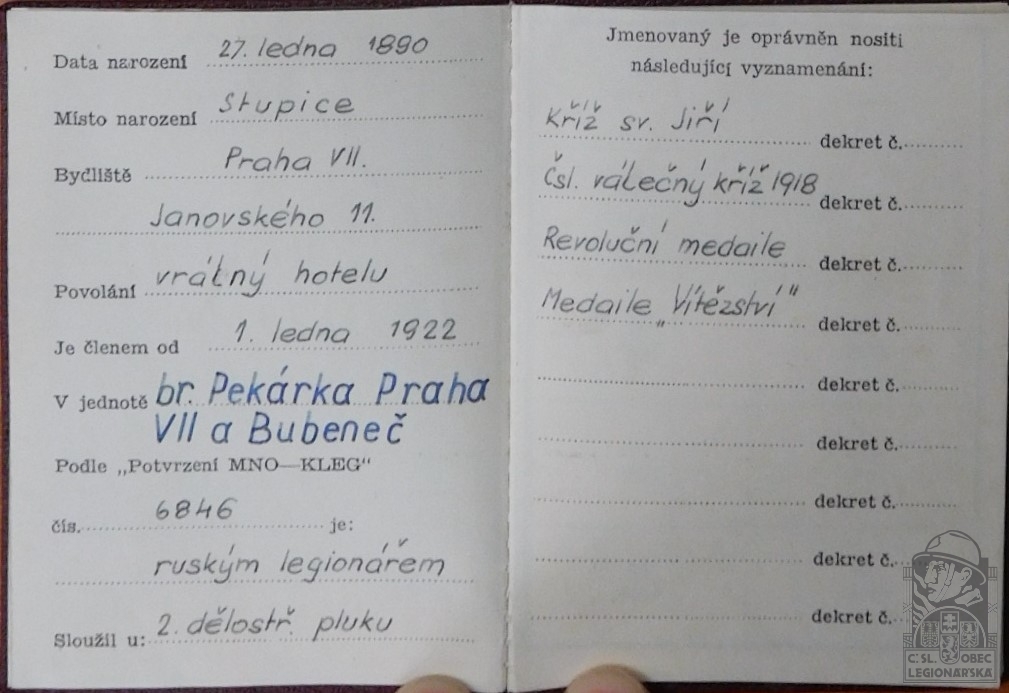 Data narození 27. ledna 1890
Místo narození Stupice
Bydliště Praha VII.
Janovského 11.
Povolání vrátný hotelu
Je členem od 1. ledna 1922
V jednotě br. Pekárka Praha
VII a Bubeneč
Podle „Potvrzení MNO—KLEG“
čís. 6846 je:
ruským legionářem
Sloužil u: 2. dělostř. pluku
Jmenovaný je oprávněn nositi
následující vyznamenání:
Kříž sv. Jiří dekret č.
Čsl. válečný kříž 1918 dekret č.
Revoluční medaile dekret č.
Medaile „Vítězství" dekret č.
dekret č.
dekret č.
dekret č.
dekret č.
dekret č.
ČSL. OBEC
LEGIONÁŘSKÁ